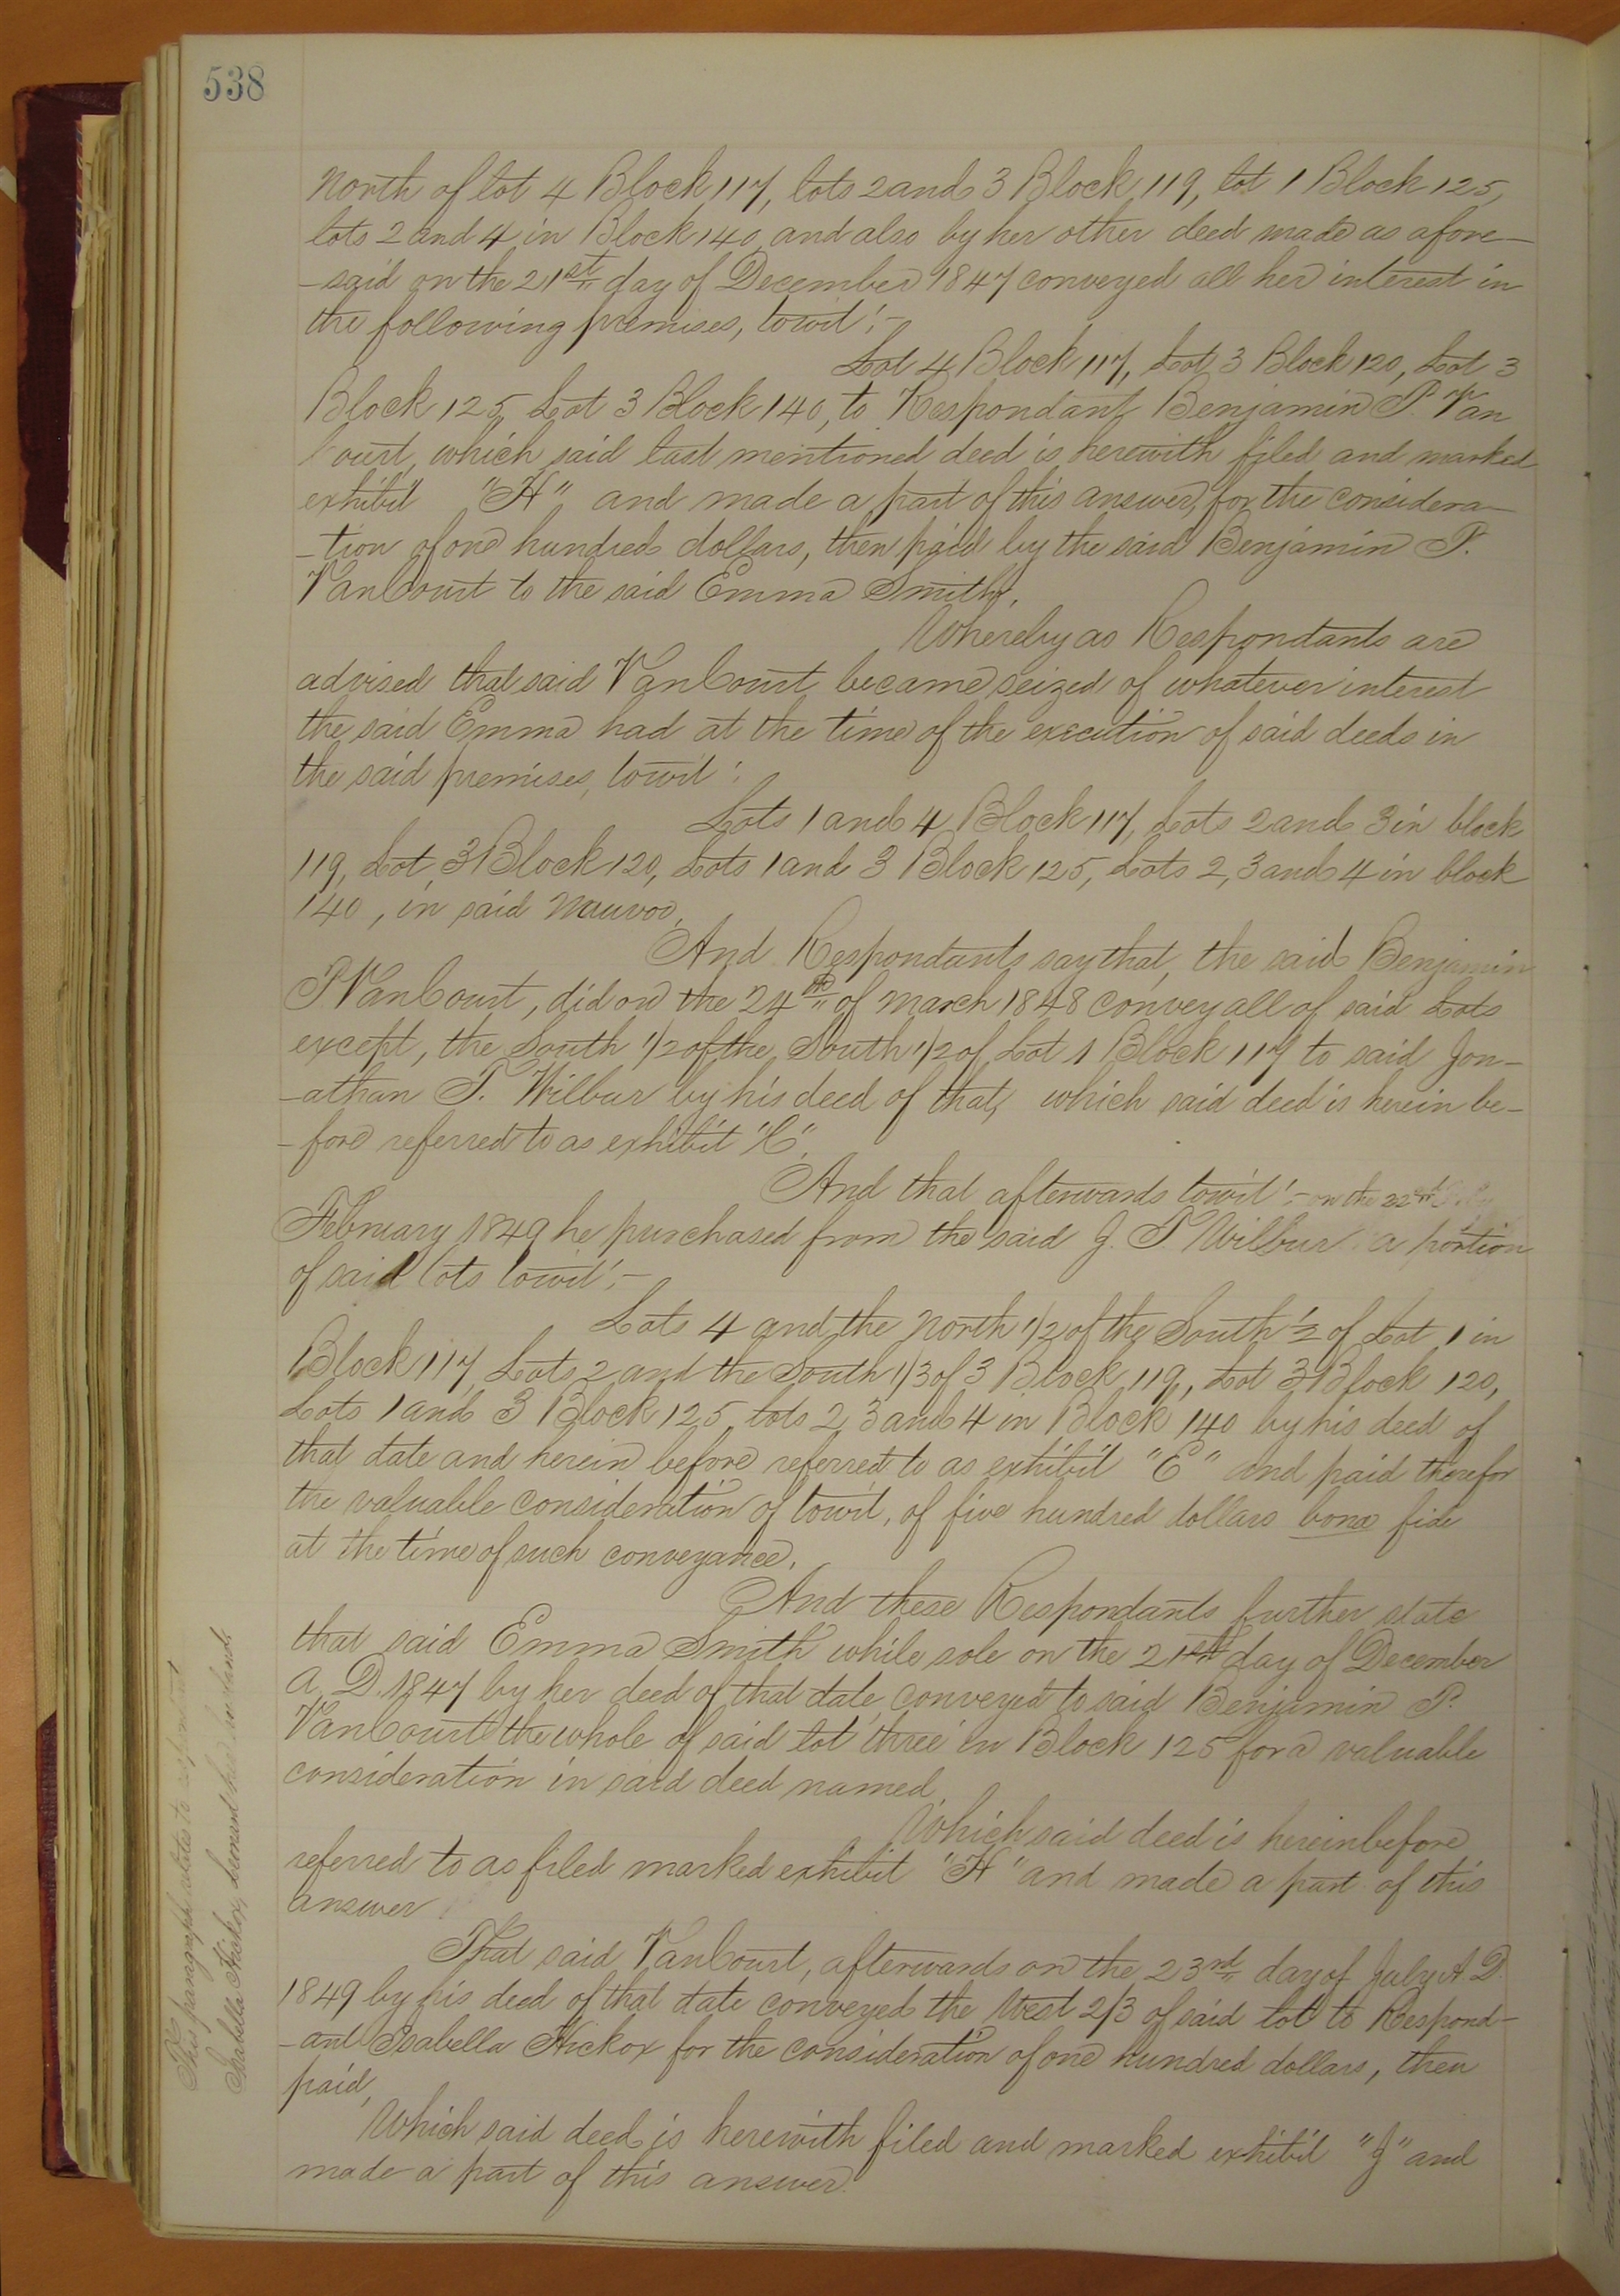 538
North of lot 4 Block 117, lots 2 and 3 Block 119, lot 1 Block 125,
lots 2 and 4 in Block 140 and also by her other deed made as afore-
-said on the 21st day of December 1847 conveyed all her interest in
the following premises, towit:-
Lot 4 Block 117, Lot 3 Block 120, Lot 3
Block 125, Lot 3 Block 140, to Respondant Benjamin P. Van
Court, which said last mentioned deed is herewith filed and marked
exhibit "H" and made a part of this answer, for the considera-
-tion of one hundred dollars, then paid by the said Benjamin P.
VanCourt to the said Emma Smith.
Whereby as Respondants are
advised that said VanCourt became seized of whatever interest
the said Emma had at the time of the execution of said deeds in
the said premises, towit:
Lots 1 and 4 Block 117, Lots 2 and 3 in block
119, Lot 3 Block 120, Lots 1 and 3 Block 125, Lots 2, 3 and 4 in block
140, in said Nauvoo,
And Respondants say that the said Benjamin
P VanCourt, did on the 24th of March 1848 convey all of said Lots
except, the South 1/2 of the South 1/2 of Lot 1 Block 117 to said Jon-
-athan P. Wilbur by his deed of that, which said deed is herein be-
-fore referred to as exhibit "C".
And that afterwards towit:- on the 22nd
February 1849 he purchased from the said J. P. Wilbur a portion
of said lots towit:-
Lots 4 and the North 1/2 of the South 1/2 of Lot 1 in
Block 117, Lots 2 and the South 1/3 of 3 Block 119, Lot 3 Block 120,
Lots 1 and 3 Block 125, lots 2, 3 and 4 in Block 140 by his deed of
that date and herein before referred to as exhibit "E" and paid therefor
the valuable consideration of towit, of five hundred dollars bona fide
at the time of such conveyance.
And these Respondants further state
that said Emma Smith while sole on the 21st day of December
A. D. 1847 by her deed of that date conveyed to said Benjamin P.
VanCourt the whole of said lot three in Block 125 for a valuable
consideration in said deed named,
Which said deed is hereinbefore
referred to as filed marked exhibit "H" and made a part of this
answer.
That said VanCourt, afterwards on the 23rd day of July A D.
1849 by his deed of that date conveyed the West 2/3 of said lot to Respond-
-ant Isabella Hickox for the consideration of one hundred dollars, then
paid,
Which said deed is herewith filed and marked exhibit "J" and
made a part of this answer.
This paragraph relates to respondent
Isabella Hickox,